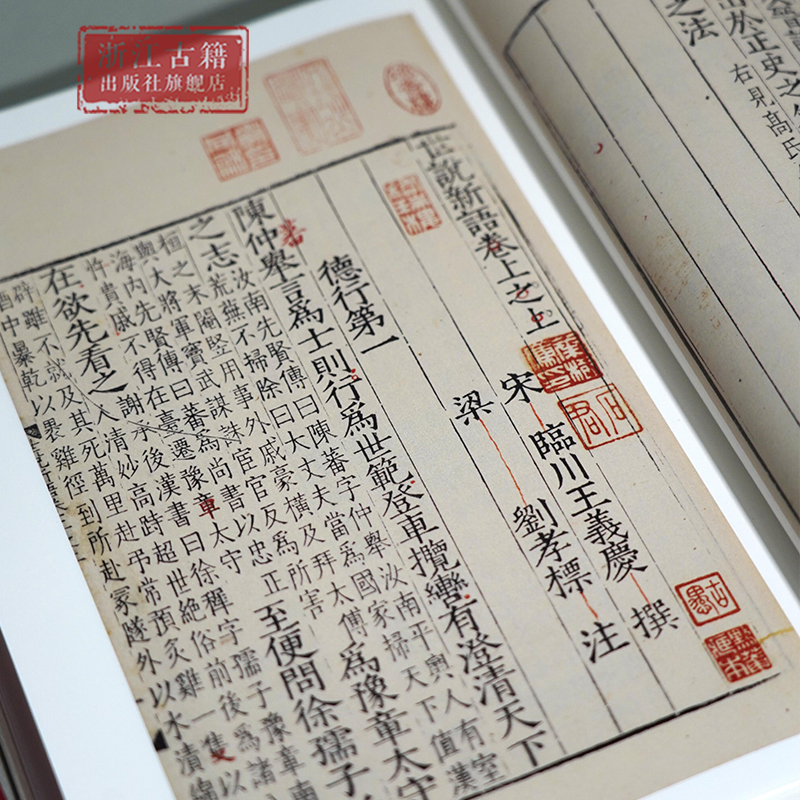 浙江古籍
出版社旗舰店
之法
出於正史之
右見高氏
世說新語卷上之上
宋 臨川王義慶 撰
梁 劉孝標 注
德行第一
陳仲舉言爲士則行爲世範登車攬轡有澄清天下
之志
汝南先賢傳曰陳蕃字仲舉汝南平輿人有室
荒蕪不掃除曰大丈夫當爲國家掃天下值漢
桓之末閹豎用事外戚豪橫及拜太傅
與大將軍竇武謀誅宦官反爲所害
爲豫章太守
海內先賢傳曰蕃爲尚書以忠正
忤貴戚不得在臺遷豫章太守
至便問徐孺子
在欲先看之
謝承後漢書曰徐穉字孺子豫章南
人清妙高跱超世絕俗前後爲諸
辟雖不就及其死萬里赴弔常預炙雞一隻以
酒中暴乾以裹雞徑到所赴冢隧外以水漬綿